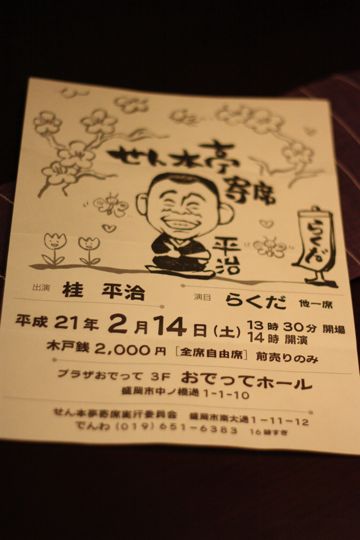 せん本亭
寄席
平治
らくだ
出演 桂 平治 演目 らくだ 他一席
平成21年2月14日(土) 13時30分 開場
14時 開演
木戸銭 2,000円 [全席自由席] 前売りのみ
プラザおでって 3F おでってホール
盛岡市中ノ橋通1-1-10
せん本夢寄席実行委員会 盛岡市南大通1-11-12
でんわ(019)651-6383